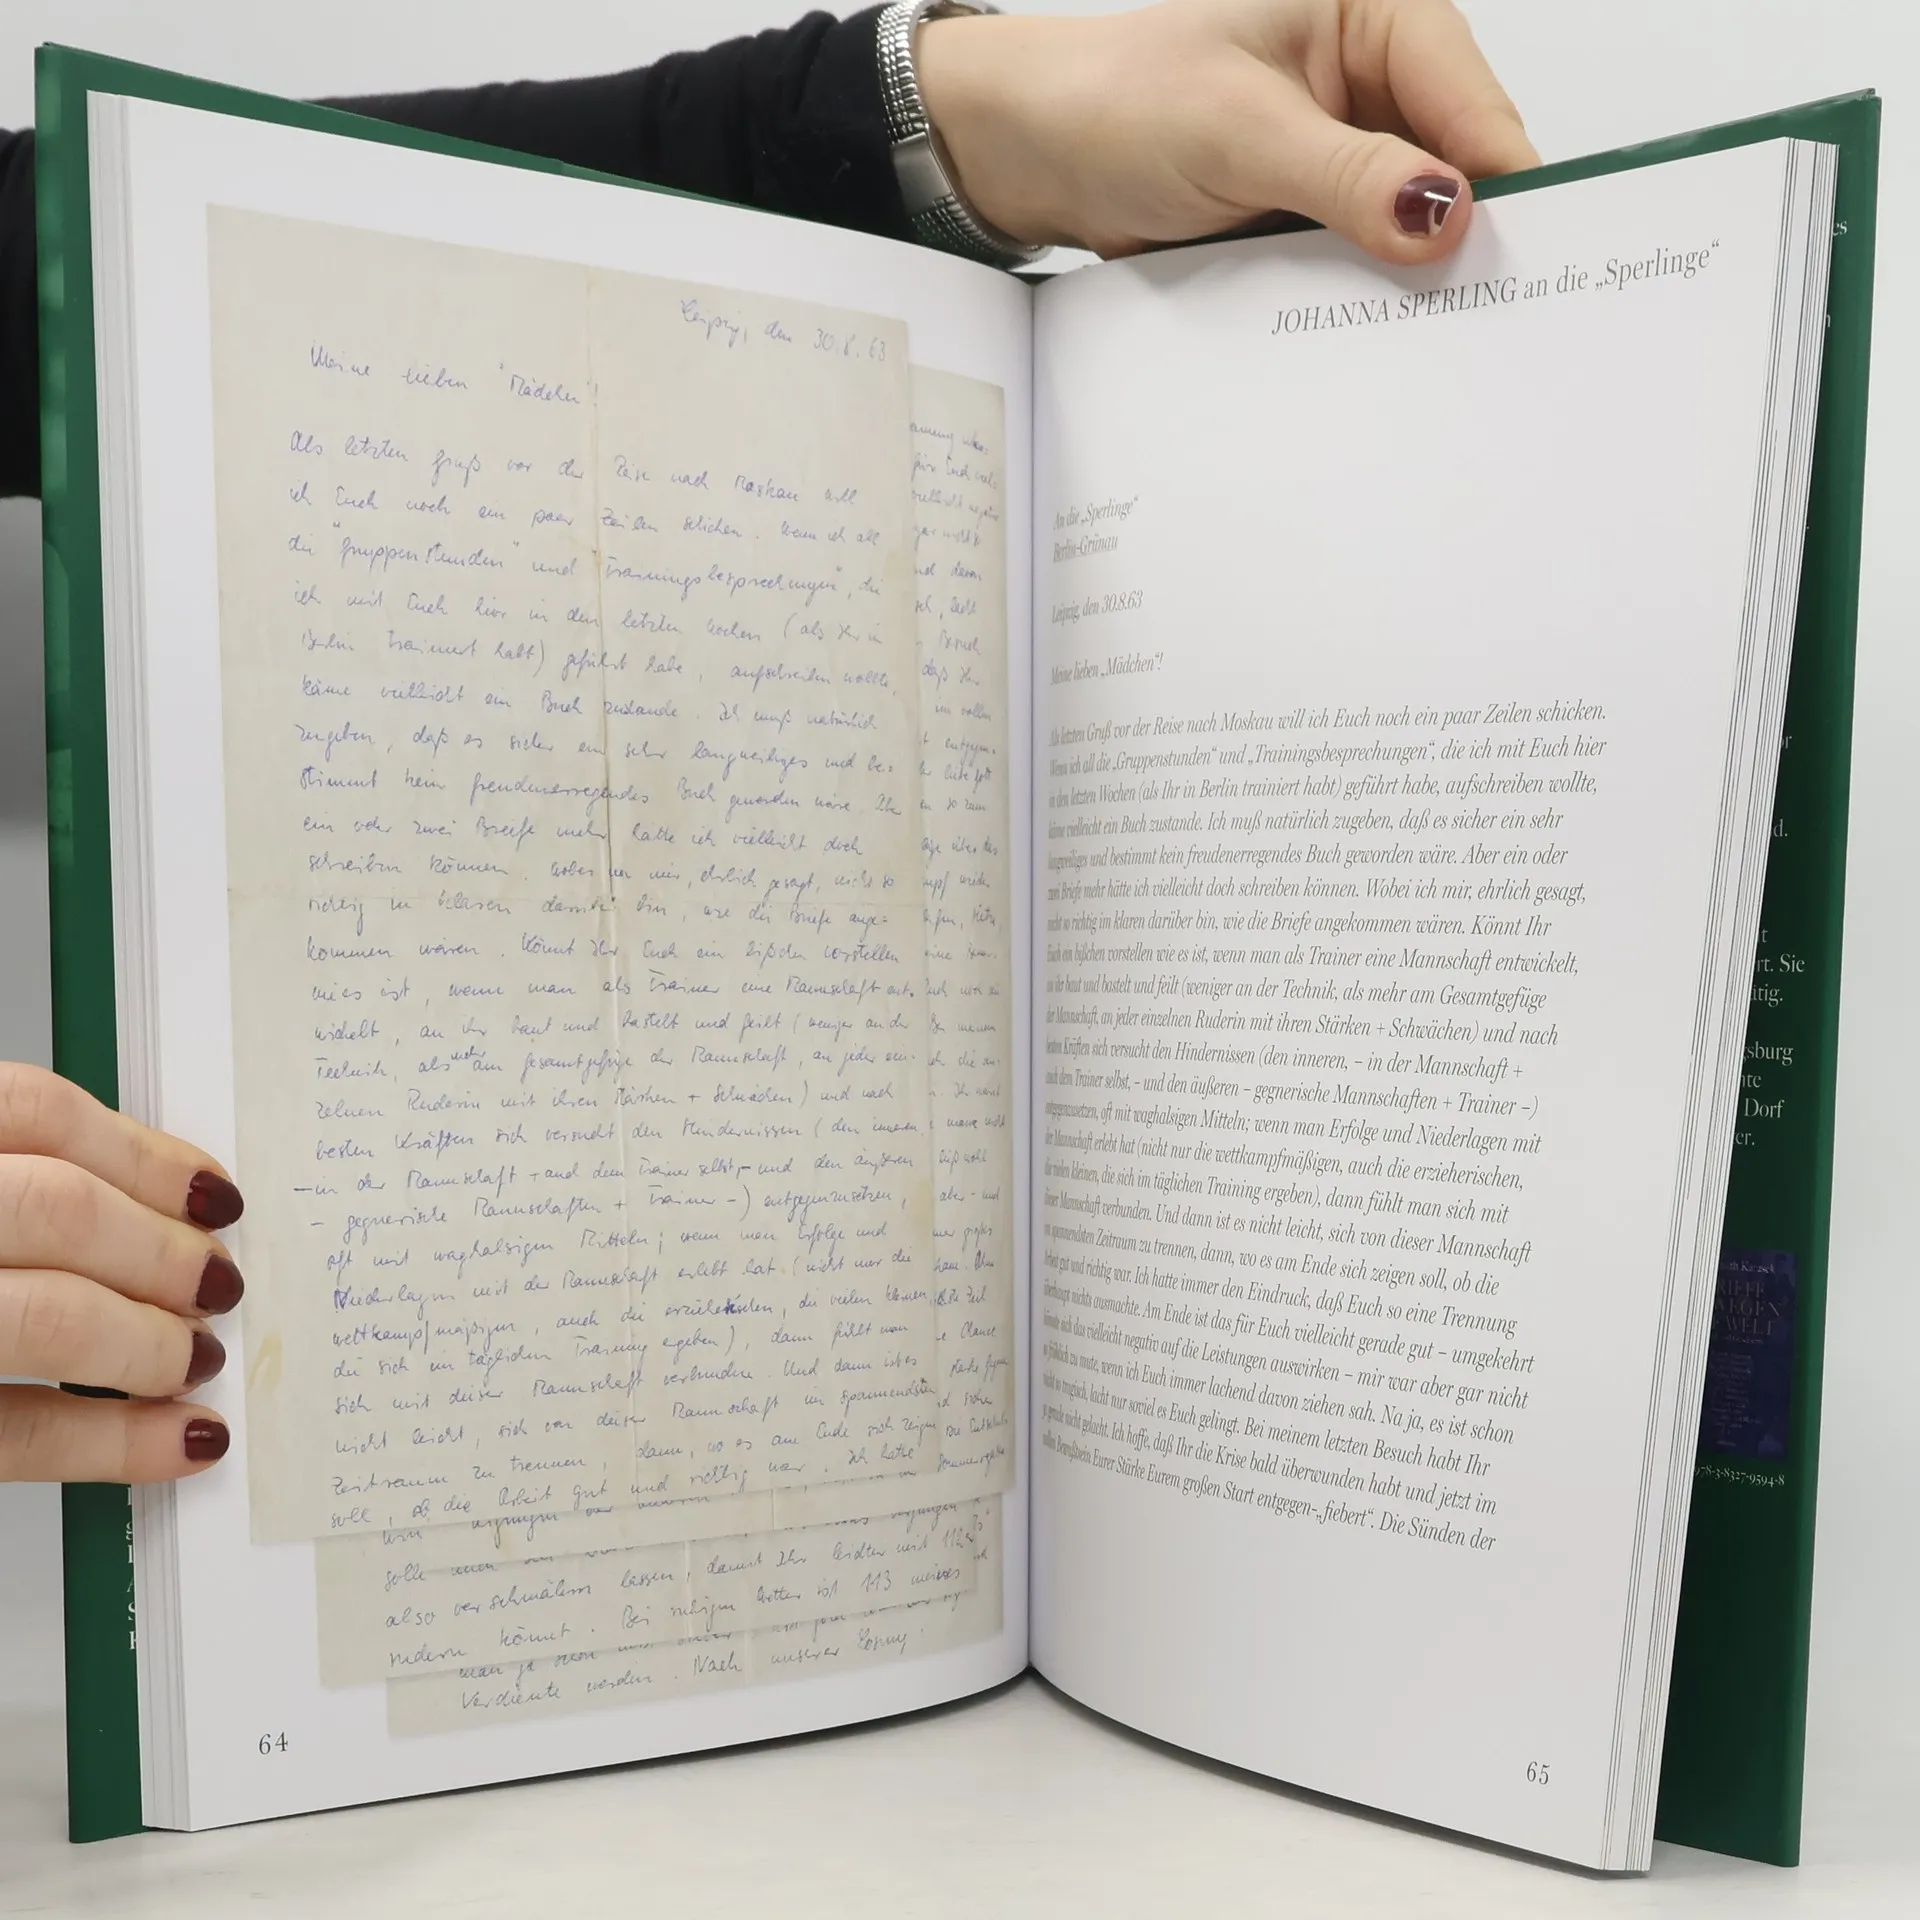 Leipzig, den 30.8.63
Meine lieben "Mädchen"!
Als letzten Gruß vor der Reise nach Moskau will
ich Euch noch ein paar Zeilen schicken. Wenn ich all
die "Gruppenstunden" und "Trainingsbesprechungen", die
ich mit Euch hier in den letzten Wochen (als Ihr in
Berlin trainiert habt) geführt habe, aufschreiben wollte,
käme vielleicht ein Buch zustande. Ich muß natürlich
zugeben, daß es sicher ein sehr langweiliges und be-
stimmt kein freudenerregendes Buch geworden wäre. Aber
ein oder zwei Briefe mehr hätte ich vielleicht doch
schreiben können. Wobei ich mir, ehrlich gesagt, nicht so
richtig im klaren darüber bin, wie die Briefe ange-
kommen wären. Könnt Ihr Euch ein bißchen vorstellen
wie es ist, wenn man als Trainer eine Mannschaft ent-
wickelt, an ihr baut und bastelt und feilt (weniger an der
Technik, als mehr am Gesamtgefüge der Mannschaft, an jeder ein-
zelnen Ruderin mit ihren Stärken + Schwächen) und nach
besten Kräften sich versucht den Hindernissen (den inneren,
– in der Mannschaft + auch dem Trainer selbst, – und den äußeren
– gegnerische Mannschaften + Trainer –) entgegenzusetzen,
oft mit waghalsigen Mitteln; wenn man Erfolge und
Niederlagen mit der Mannschaft erlebt hat (nicht nur die
wettkampfmäßigen, auch die erzieherischen, die vielen kleinen,
die sich im täglichen Training ergeben), dann fühlt man
sich mit dieser Mannschaft verbunden. Und dann ist es
nicht leicht, sich von dieser Mannschaft im spannendsten
Zeitraum zu trennen, dann, wo es am Ende sich zeigen
soll, ob die Arbeit gut und richtig war. Ich hatte
also verschmälern lassen, damit Ihr leichter mit 112
rudern könnt. Bei ruhigem Wetter ist 113 meines
Verdiente werden. Nach unserer Losung:
64
JOHANNA SPERLING an die „Sperlinge“
An die „Sperlinge“
Berlin-Grünau
Leipzig, den 30.8.63
Meine lieben „Mädchen“!
Als letzten Gruß vor der Reise nach Moskau will ich Euch noch ein paar Zeilen schicken.
Wenn ich all die „Gruppenstunden“ und „Trainingsbesprechungen“, die ich mit Euch hier
in den letzten Wochen (als Ihr in Berlin trainiert habt) geführt habe, aufschreiben wollte,
käme vielleicht ein Buch zustande. Ich muß natürlich zugeben, daß es sicher ein sehr
langweiliges und bestimmt kein freudenerregendes Buch geworden wäre. Aber ein oder
zwei Briefe mehr hätte ich vielleicht doch schreiben können. Wobei ich mir, ehrlich gesagt,
nicht so richtig im klaren darüber bin, wie die Briefe angekommen wären. Könnt Ihr
Euch ein bißchen vorstellen wie es ist, wenn man als Trainer eine Mannschaft entwickelt,
an ihr baut und bastelt und feilt (weniger an der Technik, als mehr am Gesamtgefüge
der Mannschaft, an jeder einzelnen Ruderin mit ihren Stärken + Schwächen) und nach
besten Kräften sich versucht den Hindernissen (den inneren, – in der Mannschaft +
auch dem Trainer selbst, – und den äußeren – gegnerische Mannschaften + Trainer –)
entgegenzusetzen, oft mit waghalsigen Mitteln; wenn man Erfolge und Niederlagen mit
der Mannschaft erlebt hat (nicht nur die wettkampfmäßigen, auch die erzieherischen,
die vielen kleinen, die sich im täglichen Training ergeben), dann fühlt man sich mit
dieser Mannschaft verbunden. Und dann ist es nicht leicht, sich von dieser Mannschaft
im spannendsten Zeitraum zu trennen, dann, wo es am Ende sich zeigen soll, ob die
Arbeit gut und richtig war. Ich hatte immer den Eindruck, daß Euch so eine Trennung
überhaupt nichts ausmachte. Am Ende ist das für Euch vielleicht gerade gut – umgekehrt
könnte sich das vielleicht negativ auf die Leistungen auswirken – mir war aber gar nicht
so fröhlich zu mute, wenn ich Euch immer lachend davon ziehen sah. Na ja, es ist schon
nicht so tragisch, lacht nur soviel es Euch gelingt. Bei meinem letzten Besuch habt Ihr
ja gerade nicht gelacht. Ich hoffe, daß Ihr die Krise bald überwunden habt und jetzt im
vollen Bewußtsein Eurer Stärke Eurem großen Start entgegen-„fiebert“. Die Sünden der
65
rt. Sie
ätig.
gsburg
Dorf
978-3-8327-9594-8